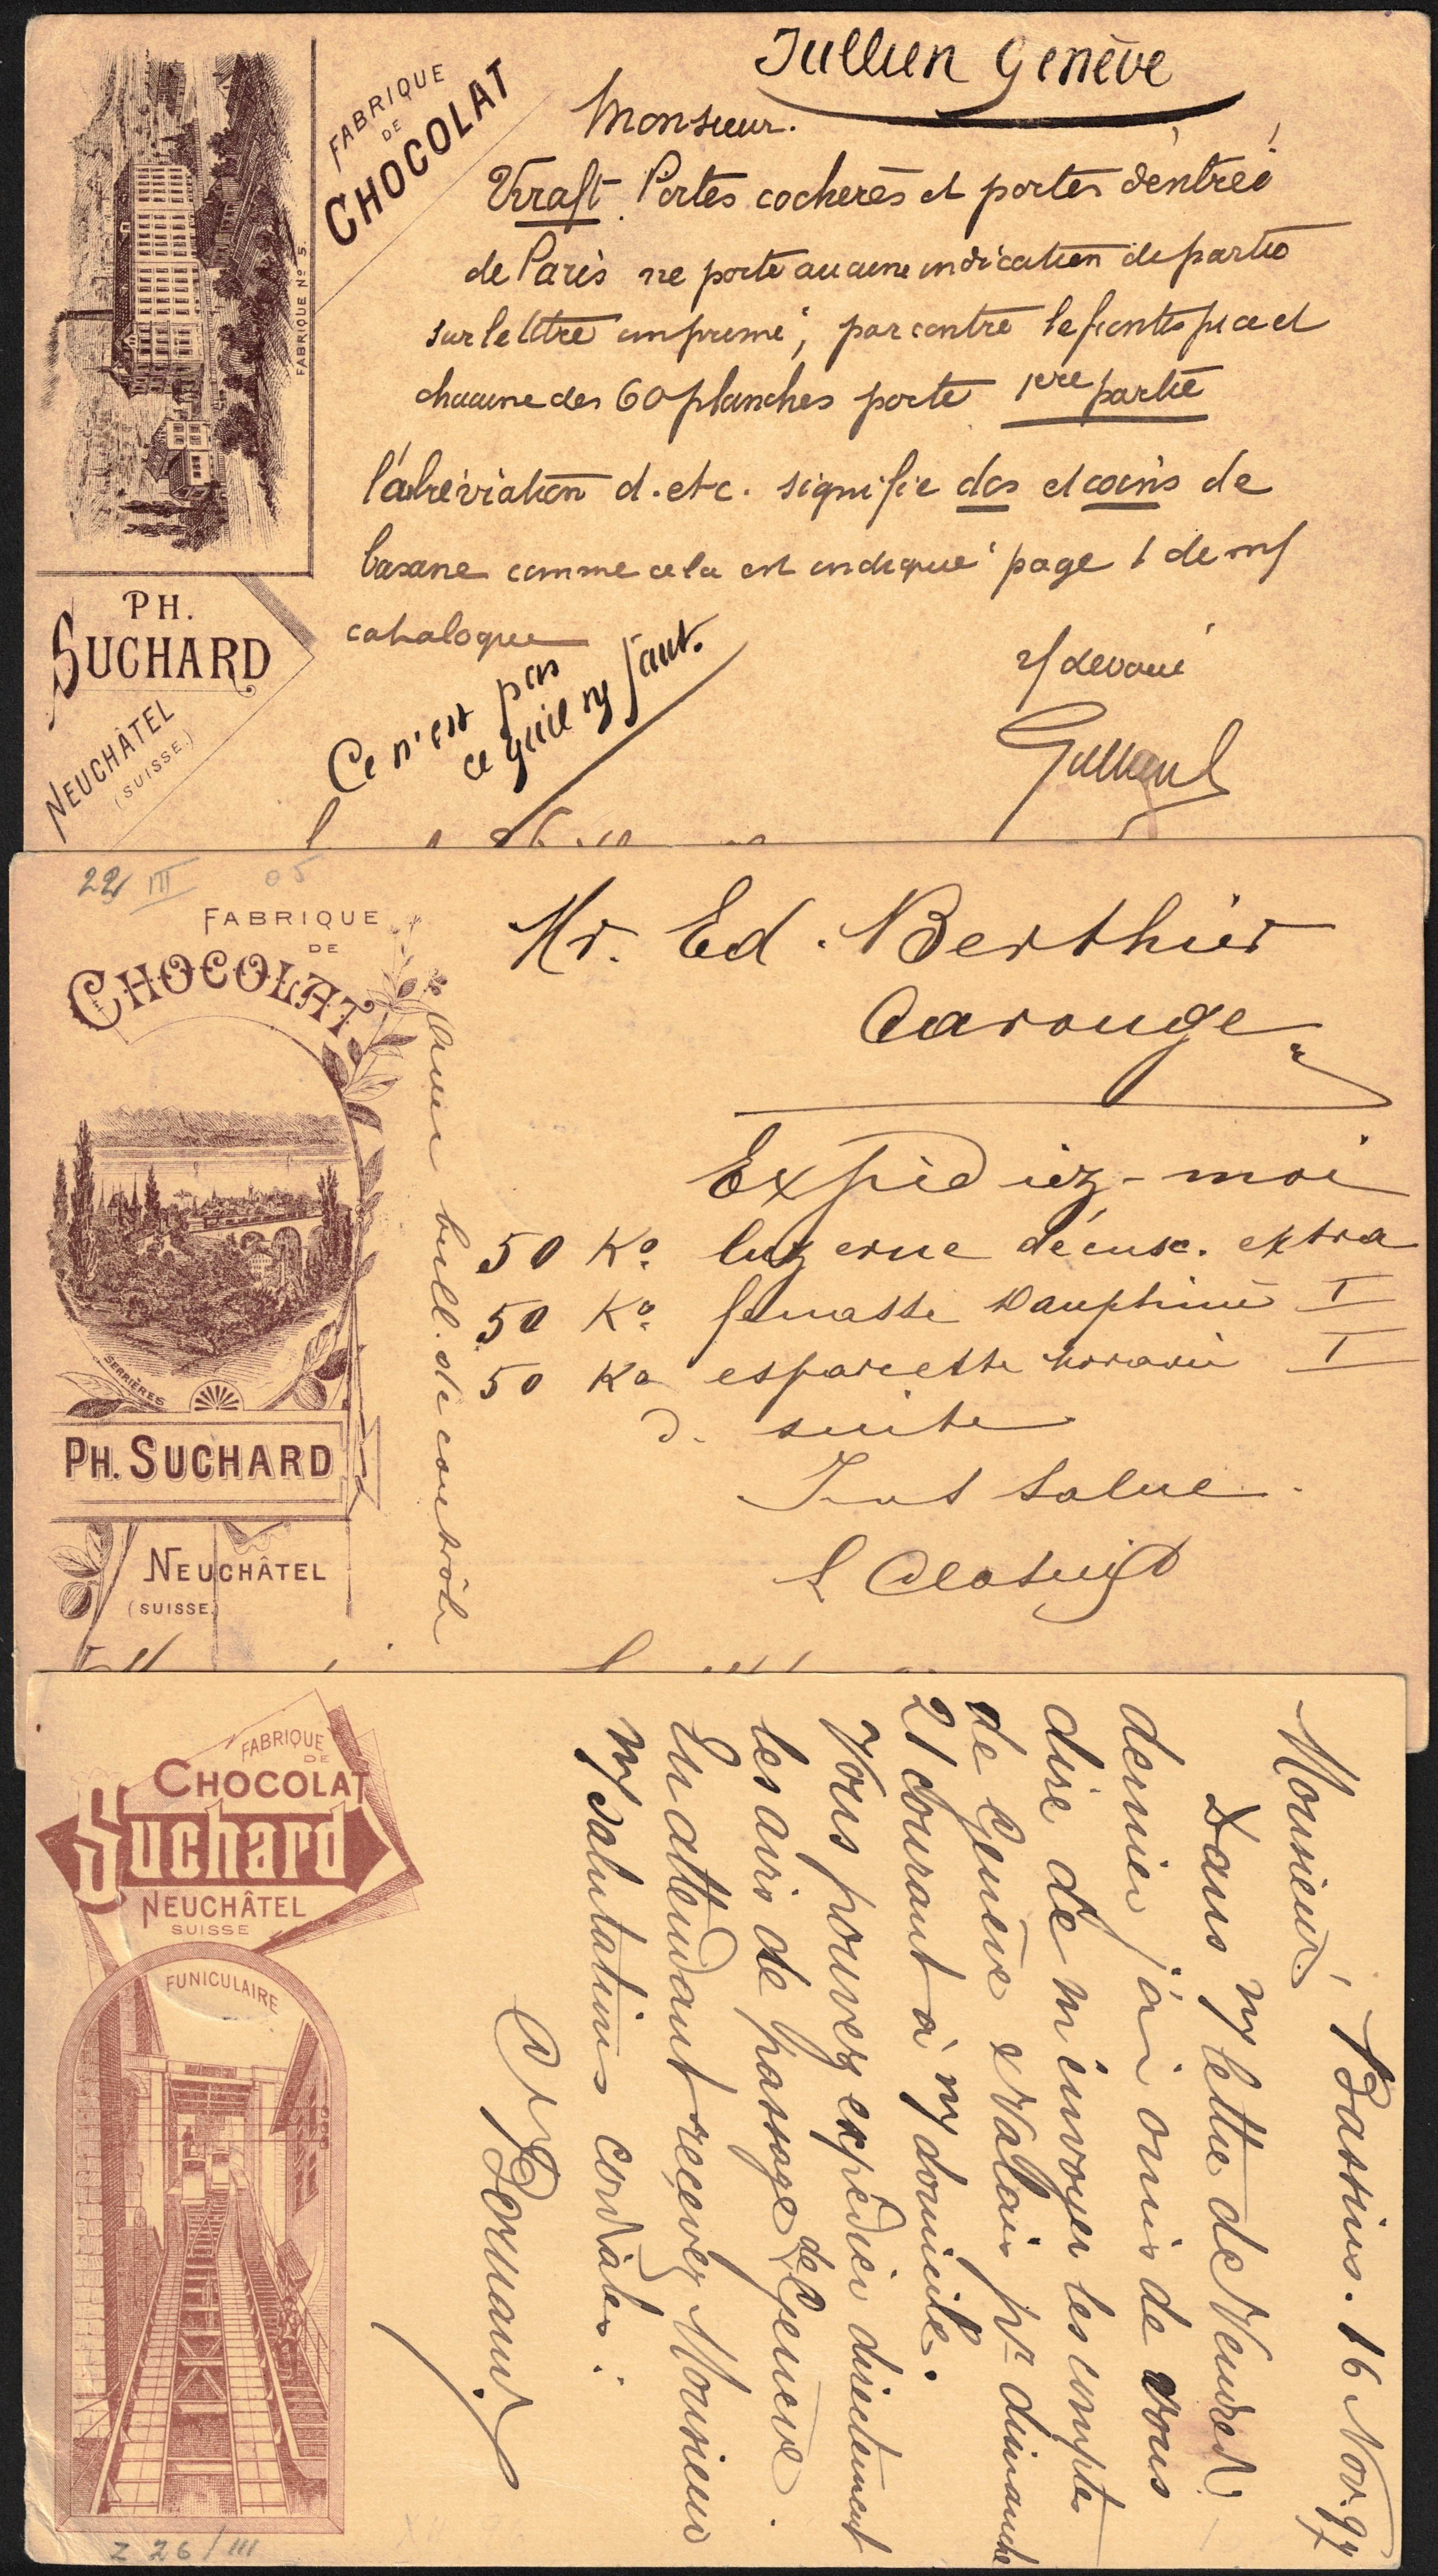 FABRIQUE
DE
CHOCOLAT
FABRIQUE No 5.
PH.
SUCHARD
NEUCHÂTEL
(SUISSE.)
Jullien Genève
Monsieur.
Portes cochères et portes d'entrée
de Paris ne porte aucune indication de partie
sur le titre imprimé, par contre le frontispice et
chacune des 60 planches porte 1ere partie
l'abréviation d. et c. signifie dos et coins de
basane comme cela est indiqué page 1 de m/
catalogue
v/ dévoué
Ce n'est pas
ce qu'il my faut.
22 III 05
FABRIQUE
DE
CHOCOLAT
SERRIÈRES
PH. SUCHARD
NEUCHÂTEL
(SUISSE.)
Mr. Ed. Berthier
Carouge
Expédiez-moi
50 Ko. luzerne décusc. extra
50 Ko. fenasse Dauphiné I
50 Ko esparcette I
d. suite
salue
Avec bull. de contrôle
FABRIQUE
DE
CHOCOLAT
Suchard
NEUCHÂTEL
SUISSE
FUNICULAIRE
Z 26/III
Bassins. 16 Nov. 97
Monsieur,
Dans m/ lettre de Vendredi
dernier j'ai omis de vous
dire de m'envoyer les comptes
de Genève & Valais pr dimanche
21 courant à m/ domicile.
Vous pouvez expédier directement
les avis de passage de Genève.
En attendant recevez Monsieur
m/ salutations cordiales.